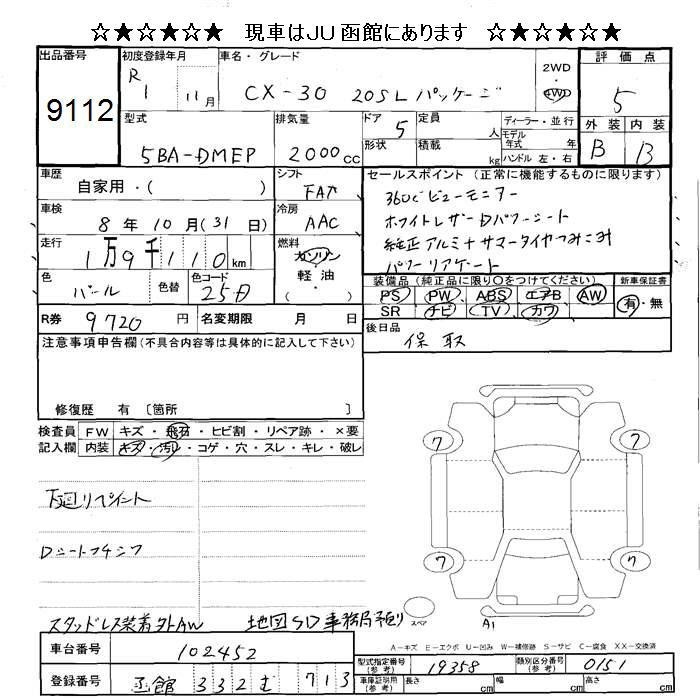 ☆★☆★☆★ 現車はJU函館にあります ☆★☆★☆★
出品番号 初度登録年月 車名・グレード 2WD 評価点
9112 R1 11月 CX-30 20S Lパッケージ 4WD 5
型式 排気量 ドア 5 定員 人 ディーラー・並行 外装 内装
5BA-DMEP 2000cc 形状 積載 kg モデル年式 年 B B
ハンドル 左・右
車歴 シフト セールスポイント (正常に機能するものに限ります)
自家用・( ) FAT 360°ビューモニター
車検 冷房 ホワイトレザーDパワーシート
8年 10月 (31日) AAC 純正アルミナサマータイヤつみこみ
走行 燃料 パワーリアゲート
1万9千110km ガソリン
軽・油
( )
色 色替 色コード 装備品 (純正品に限り○をつけてください) 新車保証書
パール 25D PS PW ABS エアB AW 有・無
SR ナビ TV カワ
R券 9720円 名変期限 月 日 後日品
保 取
注意事項申告欄 (不具合内容等は具体的に記入して下さい)
修復歴 有 〔箇所 〕
検査員 FW キズ・飛石・ヒビ割・リペア跡・×要
記入欄 内装 キズ・汚レ・コゲ・穴・スレ・キレ・破レ
7 7
下廻リペイント
Dシートフチシワ
7 7
スタッドレス装着外AW 地図SD事務局預り スペア A1
A-キズ E-エクボ U-凹み W-補修跡 S-サビ C-腐食 XX-交換済
車台番号 102452 型式指定番号(参考) 19358 類別区分番号(参考) 0151
登録番号 函館 332 む 713 車庫証明用(参考) 長さ cm 幅 cm 高さ cm